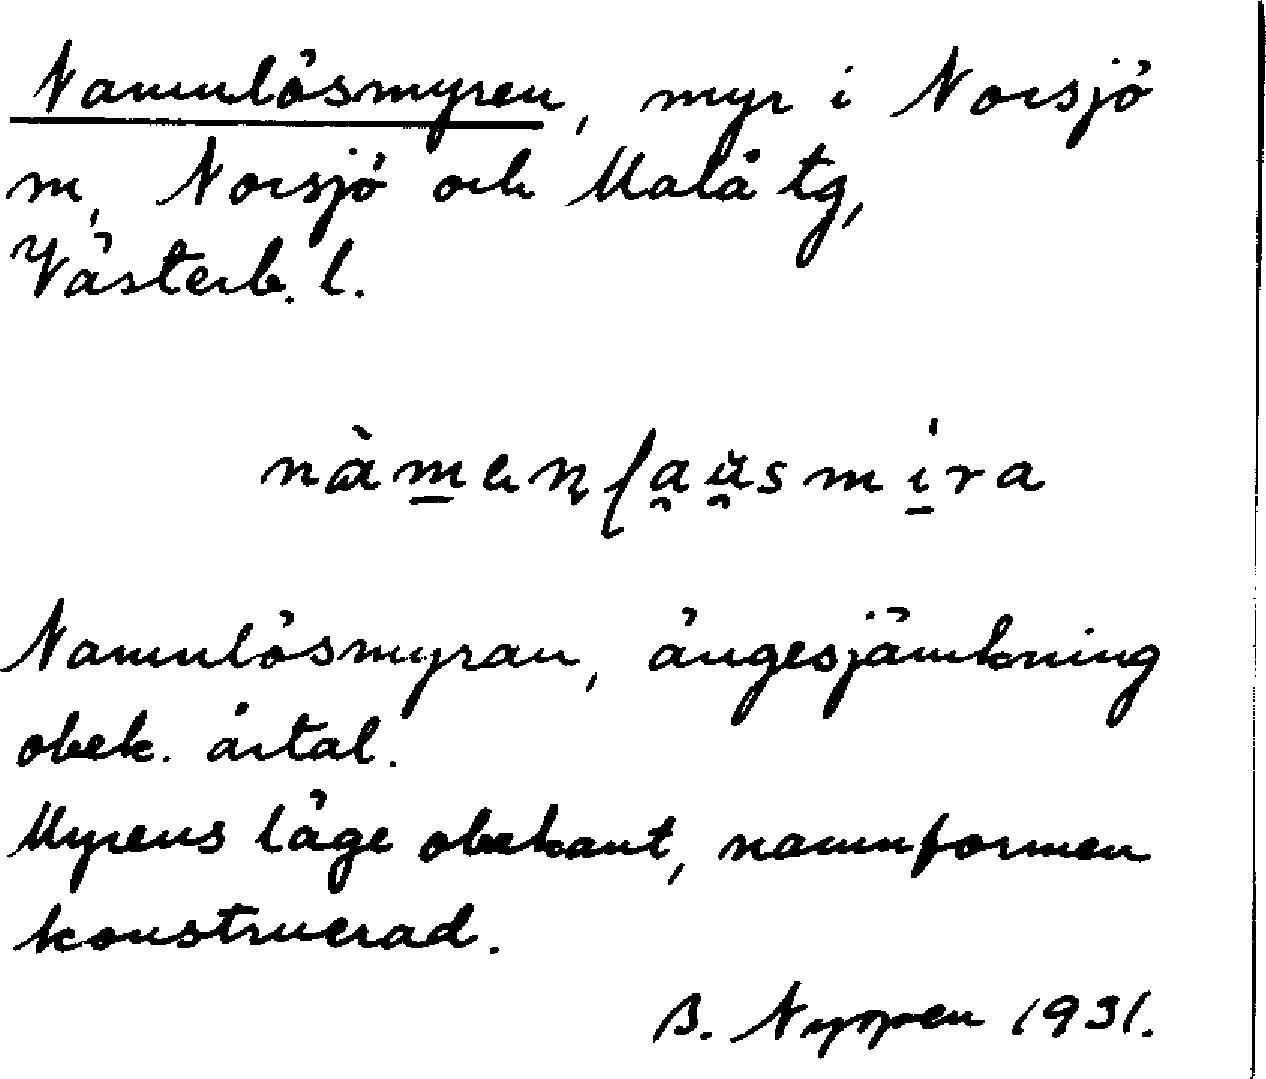 Namnlösmyren, myr i Norsjö
m, Norsjö och Malå tg,
Västerb. l.
Namnlösmyran, ängesjämkning
obek. årtal.
Myrens läge obekant, namnformen
konstruerad.
B. Nyopen 1931.